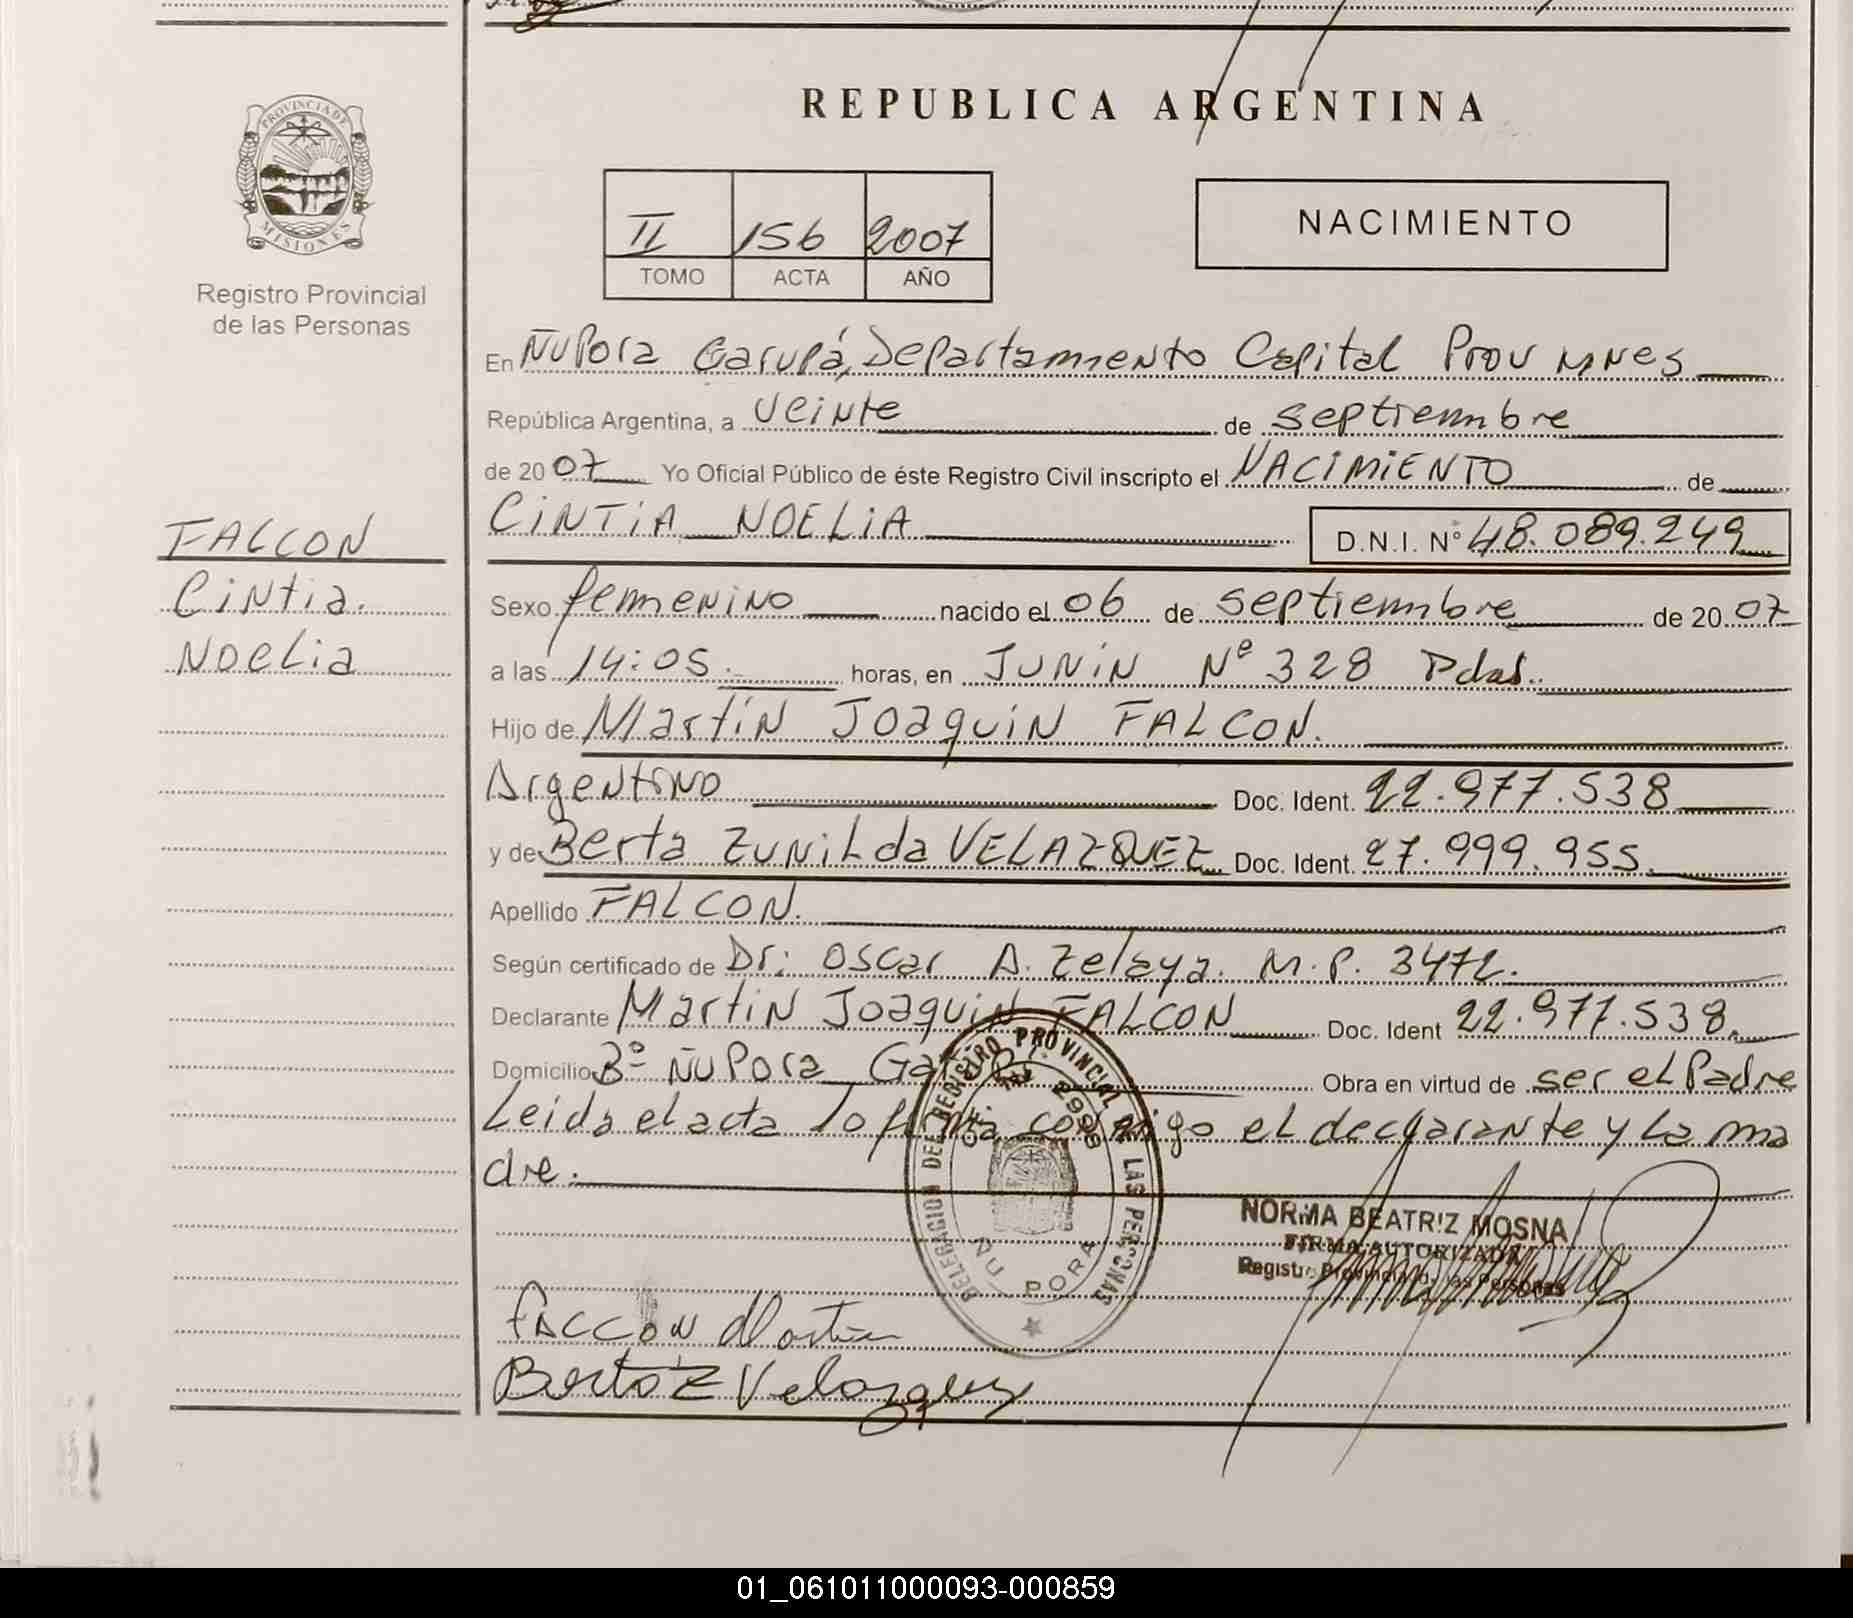 PROVINCIA DE
MISIONES
Registro Provincial
de las Personas
FALCON
Cintia.
Noelia
REPUBLICA ARGENTINA
II 156 2007
TOMO ACTA AÑO
NACIMIENTO
En Ñu Pora Garupá, Departamento Capital Prov Mnes
República Argentina, a veinte de septiembre
de 2007 Yo Oficial Público de éste Registro Civil inscripto el NACIMIENTO de
CINTIA NOELIA D.N.I. N° 48.089.249
Sexo femenino nacido el 06 de septiembre de 2007
a las 14:05. horas, en JUNIN Nº 328 Pdas.
Hijo de Martín Joaquin FALCON.
Argentino Doc. Ident. 22.977.538
y de Berta Zunilda VELAZQUEZ Doc. Ident. 27.999.955.
Apellido FALCON.
Según certificado de Dr: Oscar A. Zelaya. M.P. 3472.
Declarante Martin Joaquin FALCON Doc. Ident 22.977.538.
Domicilio Bº Ñu Pora Obra en virtud de ser el Padre
Leida el acta lo firma conmigo el declarante y la ma
dre.
DELEGACION DEL REGISTRO PROVINCIAL DE LAS PERSONAS
ÑU PORA
NORMA BEATRIZ MOSNA
FIRMA AUTORIZADA
Registro Provincial de las Personas
FALCON Martin
Berta Z Velazquez
01_061011000093-000859